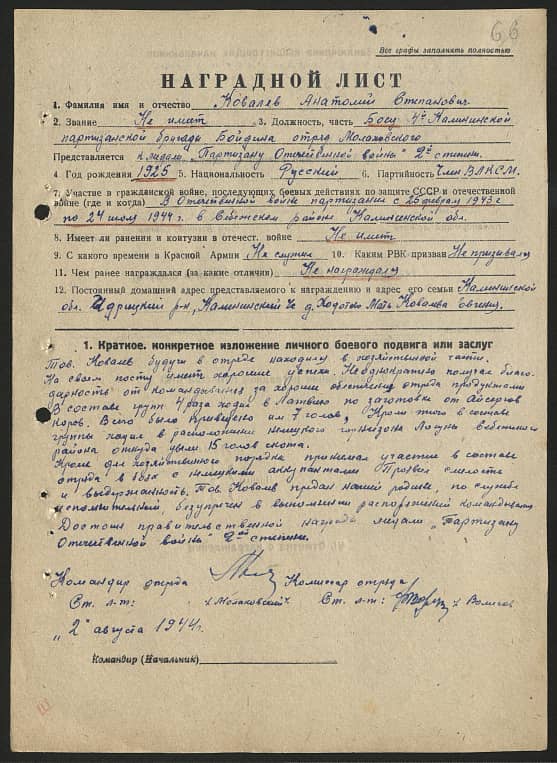 66
Все графы заполнять полностью
НАГРАДНОЙ ЛИСТ
1. Фамилия имя и отчество Ковалев Анатолий Степанович.
2. Звание Не имеет 3. Должность, часть Боец 4й Калининской
партизанской бригады Бойдина отряд Молоковского
Представляется к медали „Партизану Отечественной войны" 2й степени.
4. Год рождения 1925 5. Национальность Русский 6. Партийность Член ВЛКСМ.
7. Участие в гражданской войне, последующих боевых действиях по защите СССР и отечественной
войне (где и когда) В Отечественной войне партизании с 25 февраля 1943 г.
по 24 июля 1944 г. в Себежском районе Калининской обл.
8. Имеет ли ранения и контузии в отечест. войне Не имеет
9. С какого времени в Красной Армии Не служил 10. Каким РВК призван Не призывался
11. Чем ранее награждался (за какие отличия) Не награждался
12. Постоянный домашний адрес представляемого к награждению и адрес его семьи Калининской
обл. Идрицкий р-н, Калининский с/с д. Мать Ковалева
1. Краткое, конкретное изложение личного боевого подвига или заслуг
Тов. Ковалев будучи в отряде находился в хозяйственной части.
На своем посту имеет хорошие успехи. Неоднократно получал благо-
дарность от командования за хорошие обеспечения отряда продуктами
В составе групп 4 раза ходил в Латвию по заготовке от Айсаргов
коров. Всего было приведено им 7 голов. Кроме того в составе
группы ходил в расположение немецкого гарнизона Себежского
района откуда увели 15 голов скота.
Кроме для хозяйственного порядка принимал участие в составе
отряда в боях с немецкими оккупантами Проявил смелость
и выдержанность. Тов. Ковалев предан нашей родине, по службе
исполнительный, безупречен в выполнении распоряжений командования.
Достоин правительственной награды медали „Партизану
Отечественной войны" 2ой степени.
Командир отряда Комиссар отряда
Ст. л-т: /Молоковский/ Ст. л-т:
„2" августа 1944г.
Командир (Начальник)